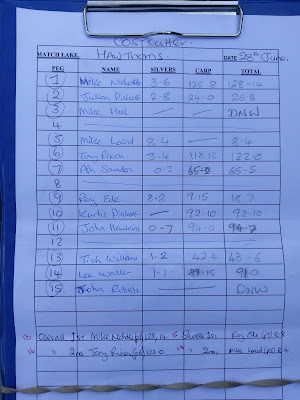 Costcutter.
MATCH LAKE. HAWTHORNS DATE 28th June.
PEG NAME SILVERS CARP TOTAL
1 Mike Nicholls 3-6 125-8 128-14
2 Julian 2-8 24-0 26-8
3 Mike — — DNW
4
5 Mike Laird 8-4 — 8-4
6 Tony 3-4 118-12 122-0
7 0-3 65-2 65-5
8
9 Roy Ede 8-8 9-15 18-7
10 Kurtis — 92-10 92-10
11 John Hawkins 0-7 94-0 94-7
12
13 Tich 1-2 42-4 43-6
14 Lee 1-1
15 John Roberts — DNW
Overall 1st Mike Nicholls 128,14 Silvers 1st Roy Ede 8-8
" 2nd Tony 122-0 " 2nd, Mike Laird 8-4